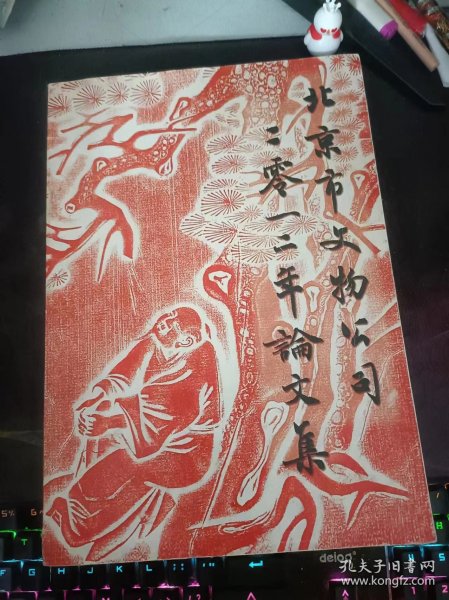 北京市文物公司
二零一二年論文集
deloa
孔夫子旧书网
www.kongfz.com
5%